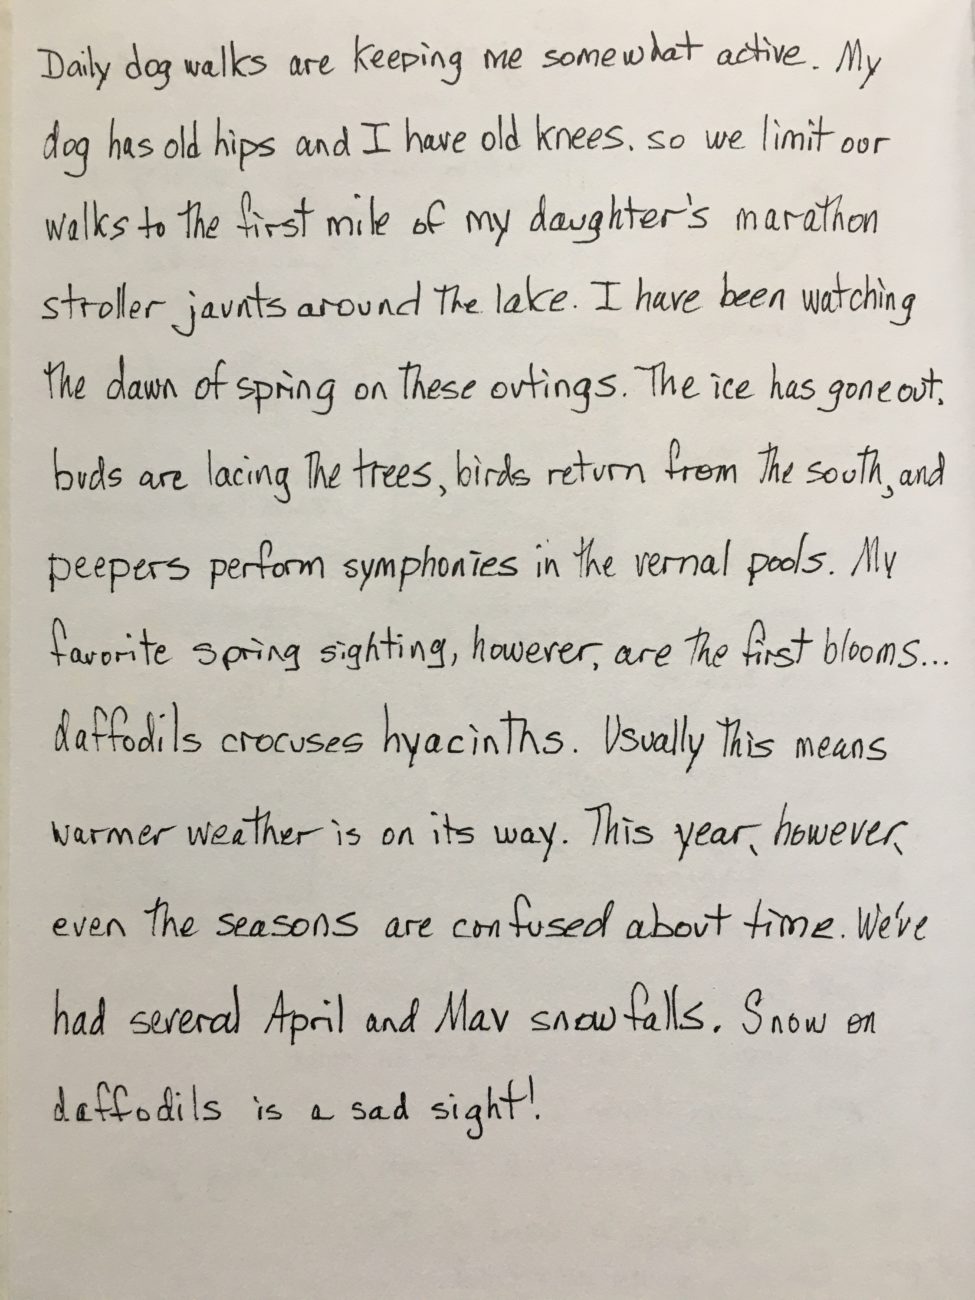 Daily dog walks are keeping me somewhat active. My
dog has old hips and I have old knees. so we limit our
walks to the first mile of my daughter's marathon
stroller jaunts around the lake. I have been watching
the dawn of spring on these outings. The ice has gone out,
buds are lacing the trees, birds return from the south, and
peepers perform symphonies in the vernal pools. My
favorite spring sighting, however, are the first blooms...
daffodils crocuses hyacinths. Usually this means
warmer weather is on its way. This year, however,
even the seasons are confused about time. We've
had several April and May snowfalls. Snow on
daffodils is a sad sight!